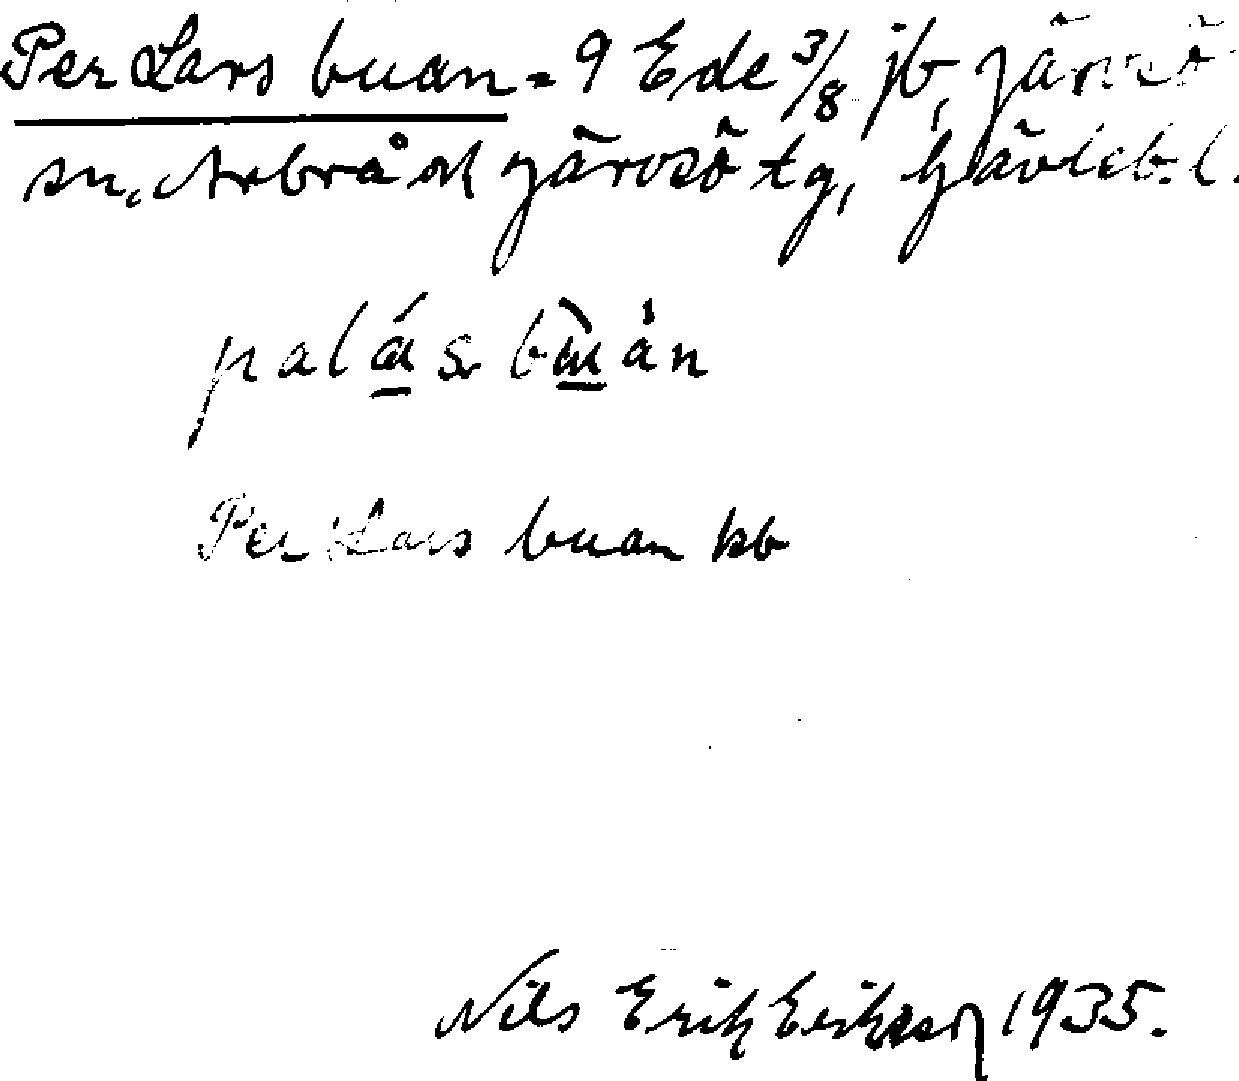 Per Lars buan = 9 Ede 3/8 jb, Järvsö
sn, Arbrå och Järvsö tg, Gävleb. l.
Per Lars buan kb
Nils Erik Eriksson 1935.